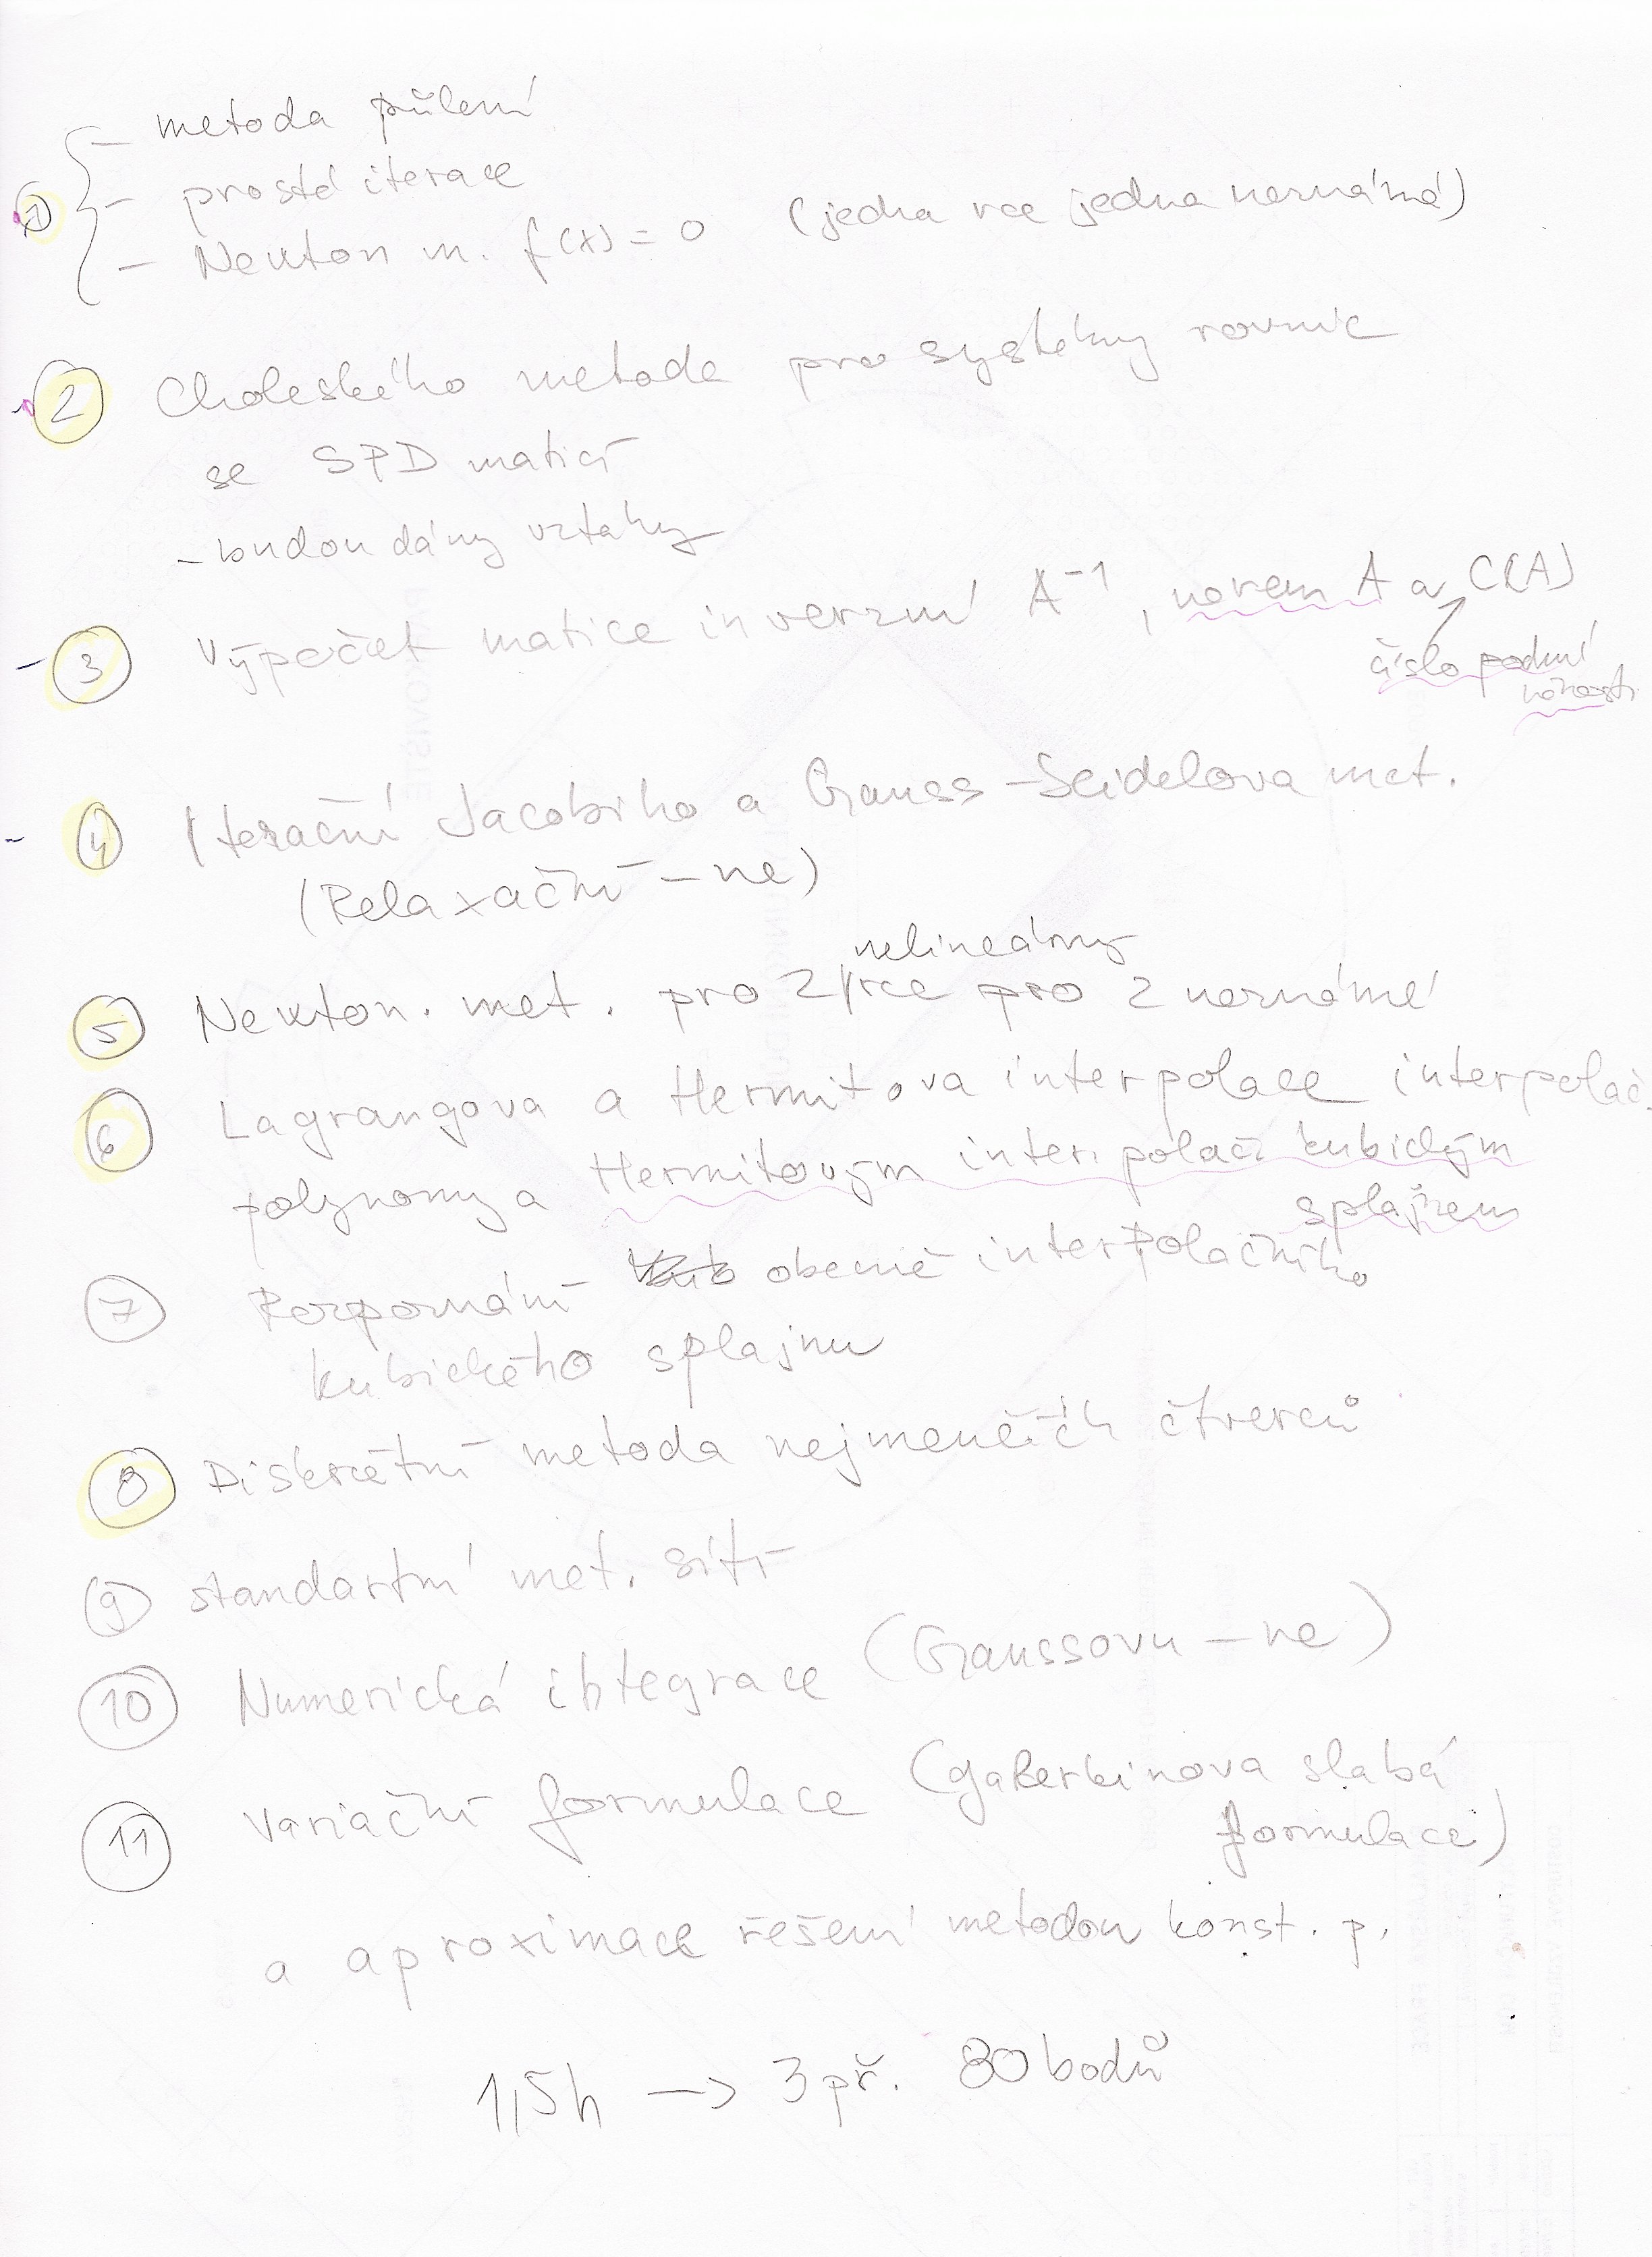 - metoda půlení
1) - prosté iterace
- Newton m. f(x) = 0 (jedna rce jedna neznámá)
2 Choleského metoda pro systémy rovnic
se SPD maticí
- budou dány vztahy
3 Výpočet matice inverzní A⁻¹, norem A a C(A)
číslo podmí
něnosti
4 Iterační Jacobiho a Gauss-Seidelova met.
(Relaxační - ne)
nelineární
5 Newton. met. pro 2 rce pro 2 neznámé
6 Lagrangova a Hermitova interpolace interpolač.
polynomy a Hermitovým interpolač. kubickým
splajnem
7 Rozpoznání obecně interpolačního
kubického splajnu
8 Diskrétní metoda nejmenších čtverců
9 standartní met. sítí
10 Numerická integrace (Gaussovu - ne)
11 Variační formulace (galerkinova slabá
formulace)
a aproximace řešení metodou konst. p.
1,5h -> 3 př. 80 bodů